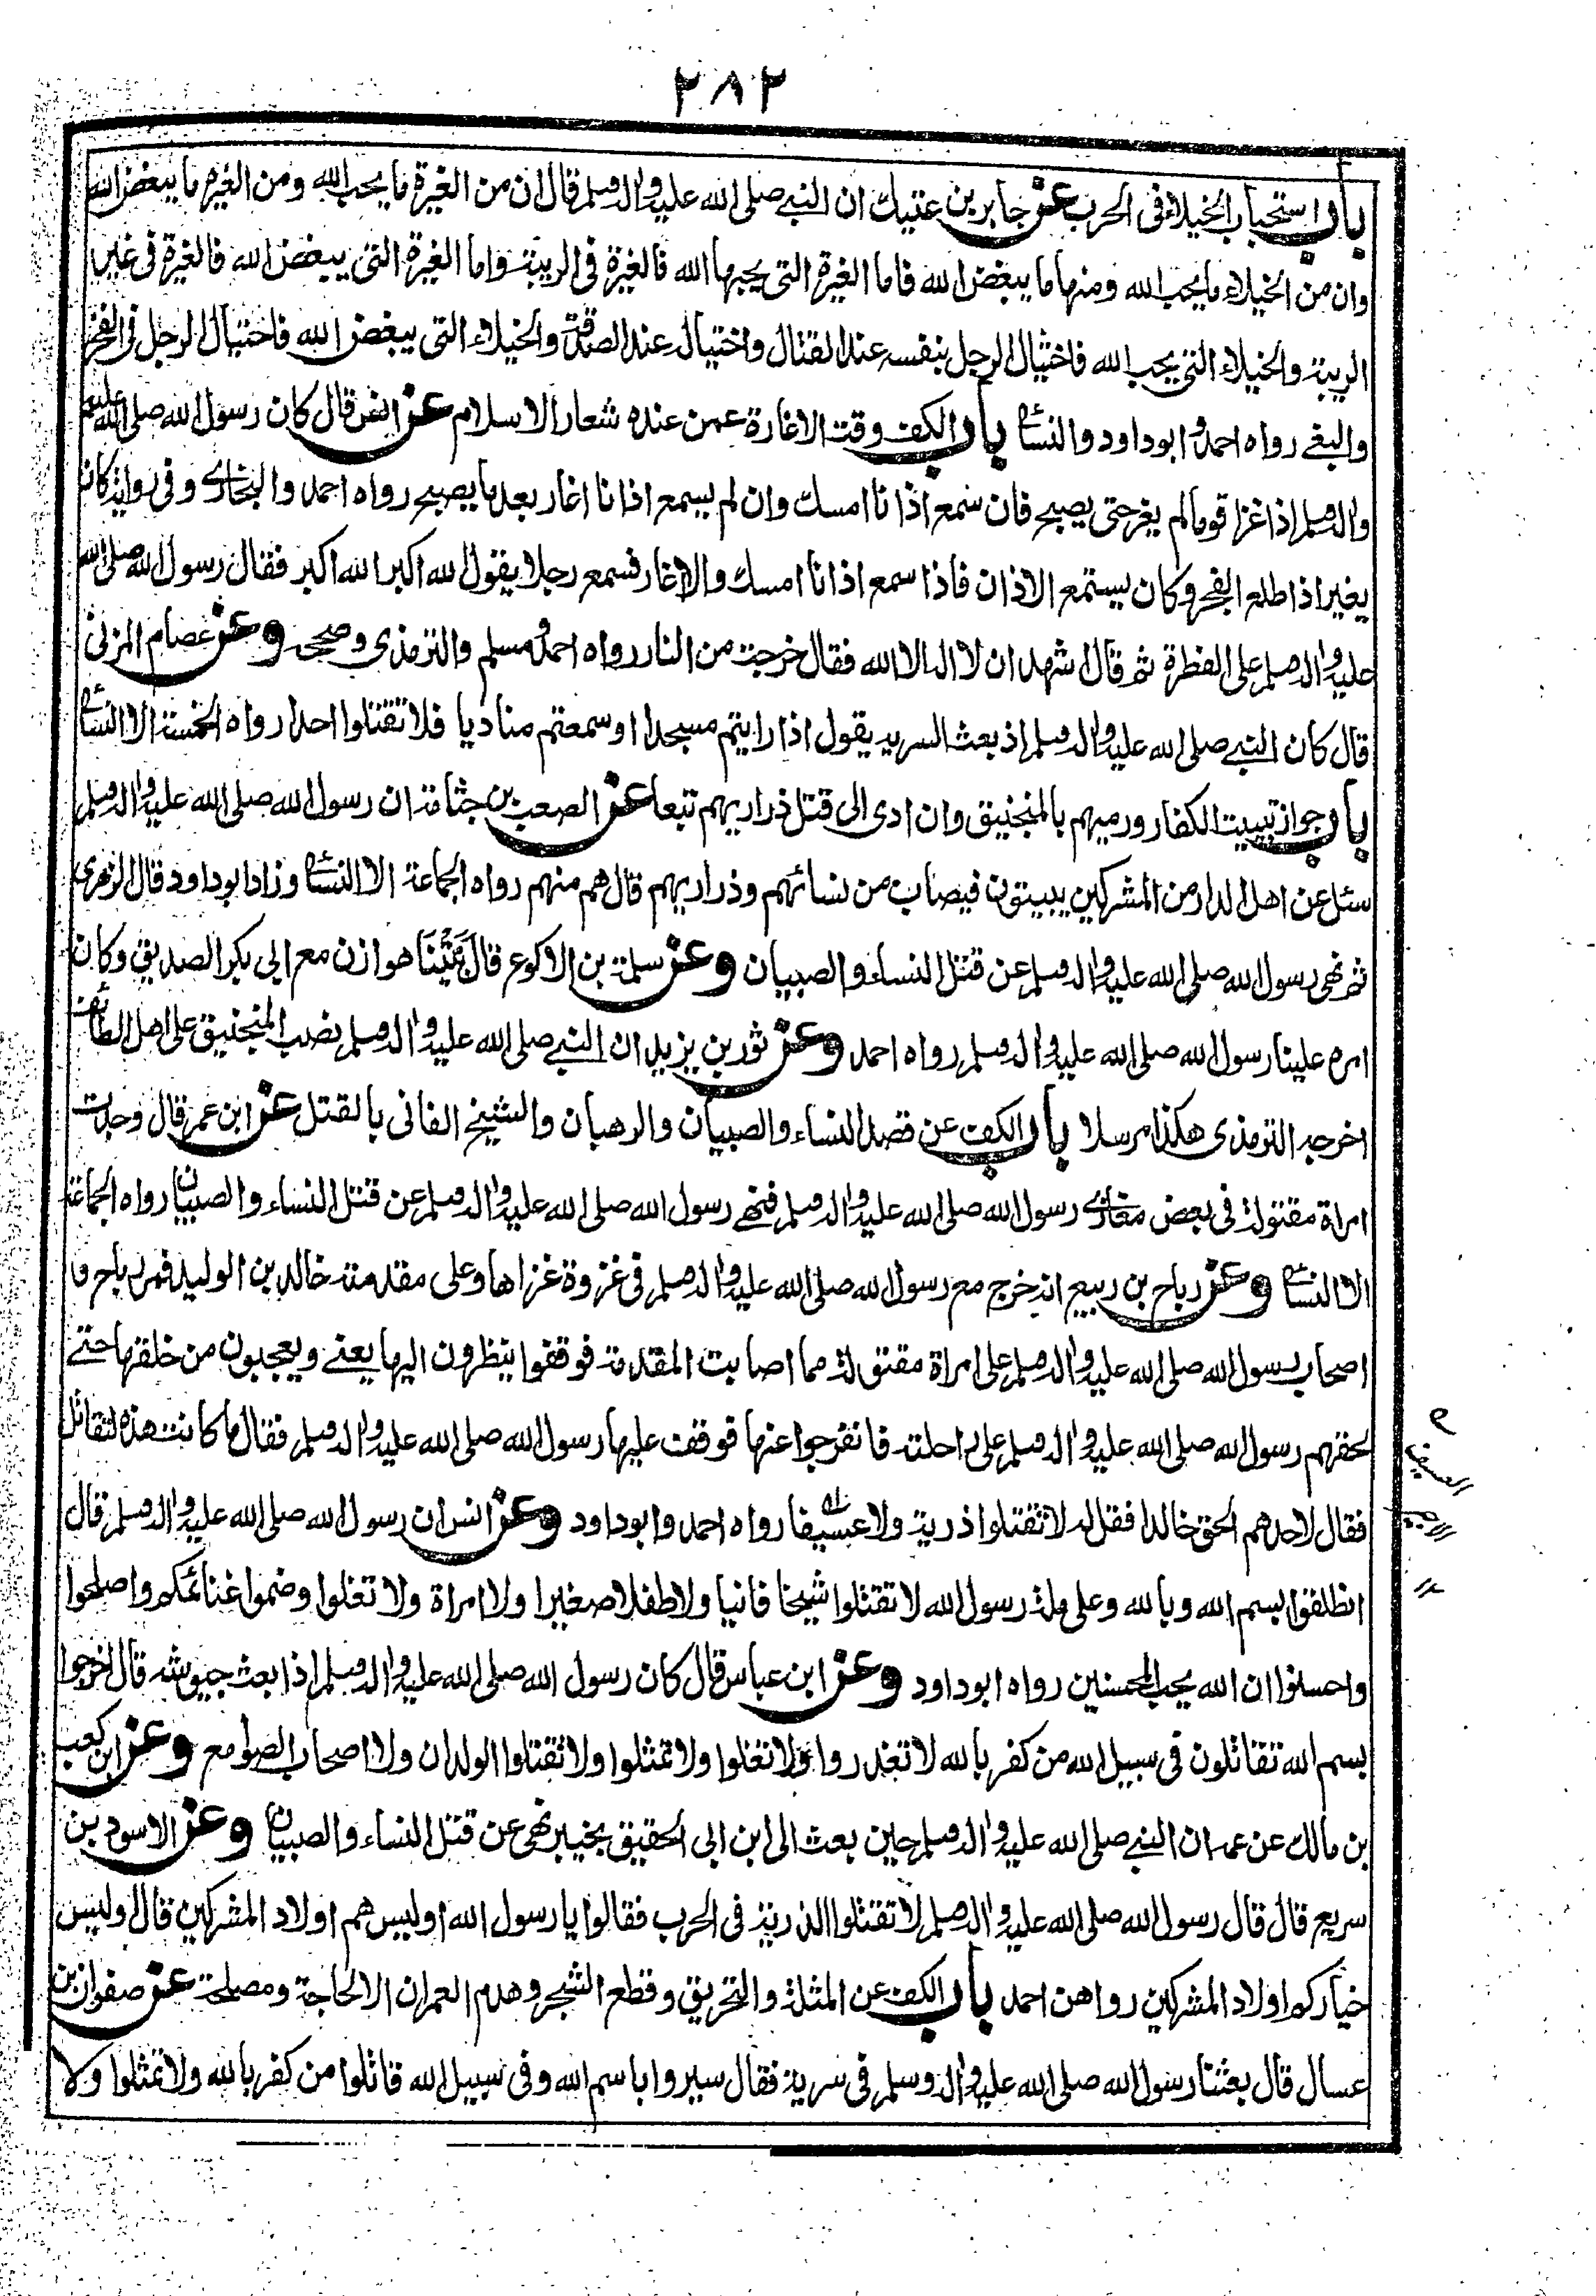 ٢٨٢
باب استحباب الخيلاء فى الحرب عن جابر بن عتيك ان النبي صلى الله عليه واله وسلم قال ان من الغيرة ما يحب الله ومن الغيرة ما يبغض الله
وان من الخيلاء ما يحب الله ومنها ما يبغض الله فاما الغيرة التى يحبها الله فالغيرة فى الريبة واما الغيرة التى يبغض الله فالغيرة فى غير
الريبة والخيلاء التى يحب الله فاختيال الرجل بنفسه عند القتال واختياله عند الصدقة والخيلاء التى يبغض الله فاختيال الرجل فى الفخر
والبغى رواه احمد وابوداود والنسائي باب الكف وقت الاغارة عمن عنده شعار الاسلام عن انس قال كان رسول الله صلى الله عليه
واله وسلم اذا غزا قوما لم يغز حتى يصبح فان سمع اذانا امسك وان لم يسمع اذانا اغار بعد ما يصبح رواه احمد والبخارى وفى رواية كان
يغير اذا طلع الفجر وكان يستمع الاذان فاذا سمع اذانا امسك والا اغار فسمع رجلا يقول الله اكبر الله اكبر فقال رسول الله صلى الله
عليه واله وسلم على الفطرة ثم قال اشهد ان لا اله الا الله فقال خرجت من النار رواه احمد ومسلم والترمذى وصححه وعن عصام المزنى
قال كان النبي صلى الله عليه واله وسلم اذ بعث السرية يقول اذا رايتم مسجدا او سمعتم مناديا فلا تقتلوا احدا رواه الخمسة الا النسائي
باب جواز تبييت الكفار ورميهم بالمنجنيق وان ادى الى قتل ذراريهم تبعا عن الصعب بن جثامة ان رسول الله صلى الله عليه واله وسلم
سئل عن اهل الدار من المشركين يبيتون فيصاب من نسائهم وذراريهم قال هم منهم رواه الجماعة الا النسائي وزاد ابوداود قال الزهرى
ثم نهى رسول الله صلى الله عليه واله وسلم عن قتل النساء والصبيان وعن سلمة بن الاكوع قال بَيَّتْنَا هوازن مع ابى بكر الصديق وكان
امره علينا رسول الله صلى الله عليه واله وسلم رواه احمد وعن ثور بن يزيد ان النبي صلى الله عليه واله وسلم نصب المنجنيق على اهل الطائف
اخرجه الترمذى هكذا مرسلا باب الكف عن قصد النساء والصبيان والرهبان والشيخ الفانى بالقتل عن ابن عمر قال وجدت
امراة مقتولة فى بعض مغازى رسول الله صلى الله عليه واله وسلم فنهى رسول الله صلى الله عليه واله وسلم عن قتل النساء والصبيان رواه الجماعة
الا النسائي وعن رباح بن ربيع انه خرج مع رسول الله صلى الله عليه واله وسلم فى غزوة غزاها وعلى مقدمته خالد بن الوليد فمر رباح و
اصحاب رسول الله صلى الله عليه واله وسلم على امراة مقتولة مما اصابت المقدمة فوقفوا ينظرون اليها يعنى ويعجبون من خلقها حتى
لحقهم رسول الله صلى الله عليه واله وسلم على راحلته فانفرجوا عنها فوقف عليها رسول الله صلى الله عليه واله وسلم فقال ما كانت هذه لتقاتل
فقال لاحدهم الحق خالدا فقل له لا تقتلوا ذرية ولا عسيفا رواه احمد وابوداود وعن انس ان رسول الله صلى الله عليه واله وسلم قال
انطلقوا بسم الله وبالله وعلى ملة رسول الله لا تقتلوا شيخا فانيا ولا طفلا صغيرا ولا امراة ولا تغلوا وضموا غنائمكم واصلحوا
واحسنوا ان الله يحب المحسنين رواه ابوداود وعن ابن عباس قال كان رسول الله صلى الله عليه واله وسلم اذا بعث جيوشه قال اخرجوا
بسم الله تقاتلون فى سبيل الله من كفر بالله لا تغدروا ولا تغلوا ولا تمثلوا ولا تقتلوا الولدان ولا اصحاب الصوامع وعن ابن كعب
بن مالك عن عمه ان النبي صلى الله عليه واله وسلم حين بعث الى ابن ابى الحقيق بخيبر نهى عن قتل النساء والصبيان وعن الاسود بن
سريع قال قال رسول الله صلى الله عليه واله وسلم لا تقتلوا الذرية فى الحرب فقالوا يا رسول الله اوليس هم اولاد المشركين قال اوليس
خياركم اولاد المشركين رواهن احمد باب الكف عن المثلة والتحريق وقطع الشجر وهدم العمران الا لحاجة ومصلحة عن صفوان بن
عسال قال بعثنا رسول الله صلى الله عليه واله وسلم فى سرية فقال سيروا باسم الله وفى سبيل الله قاتلوا من كفر بالله ولا تمثلوا ولا
العسيف